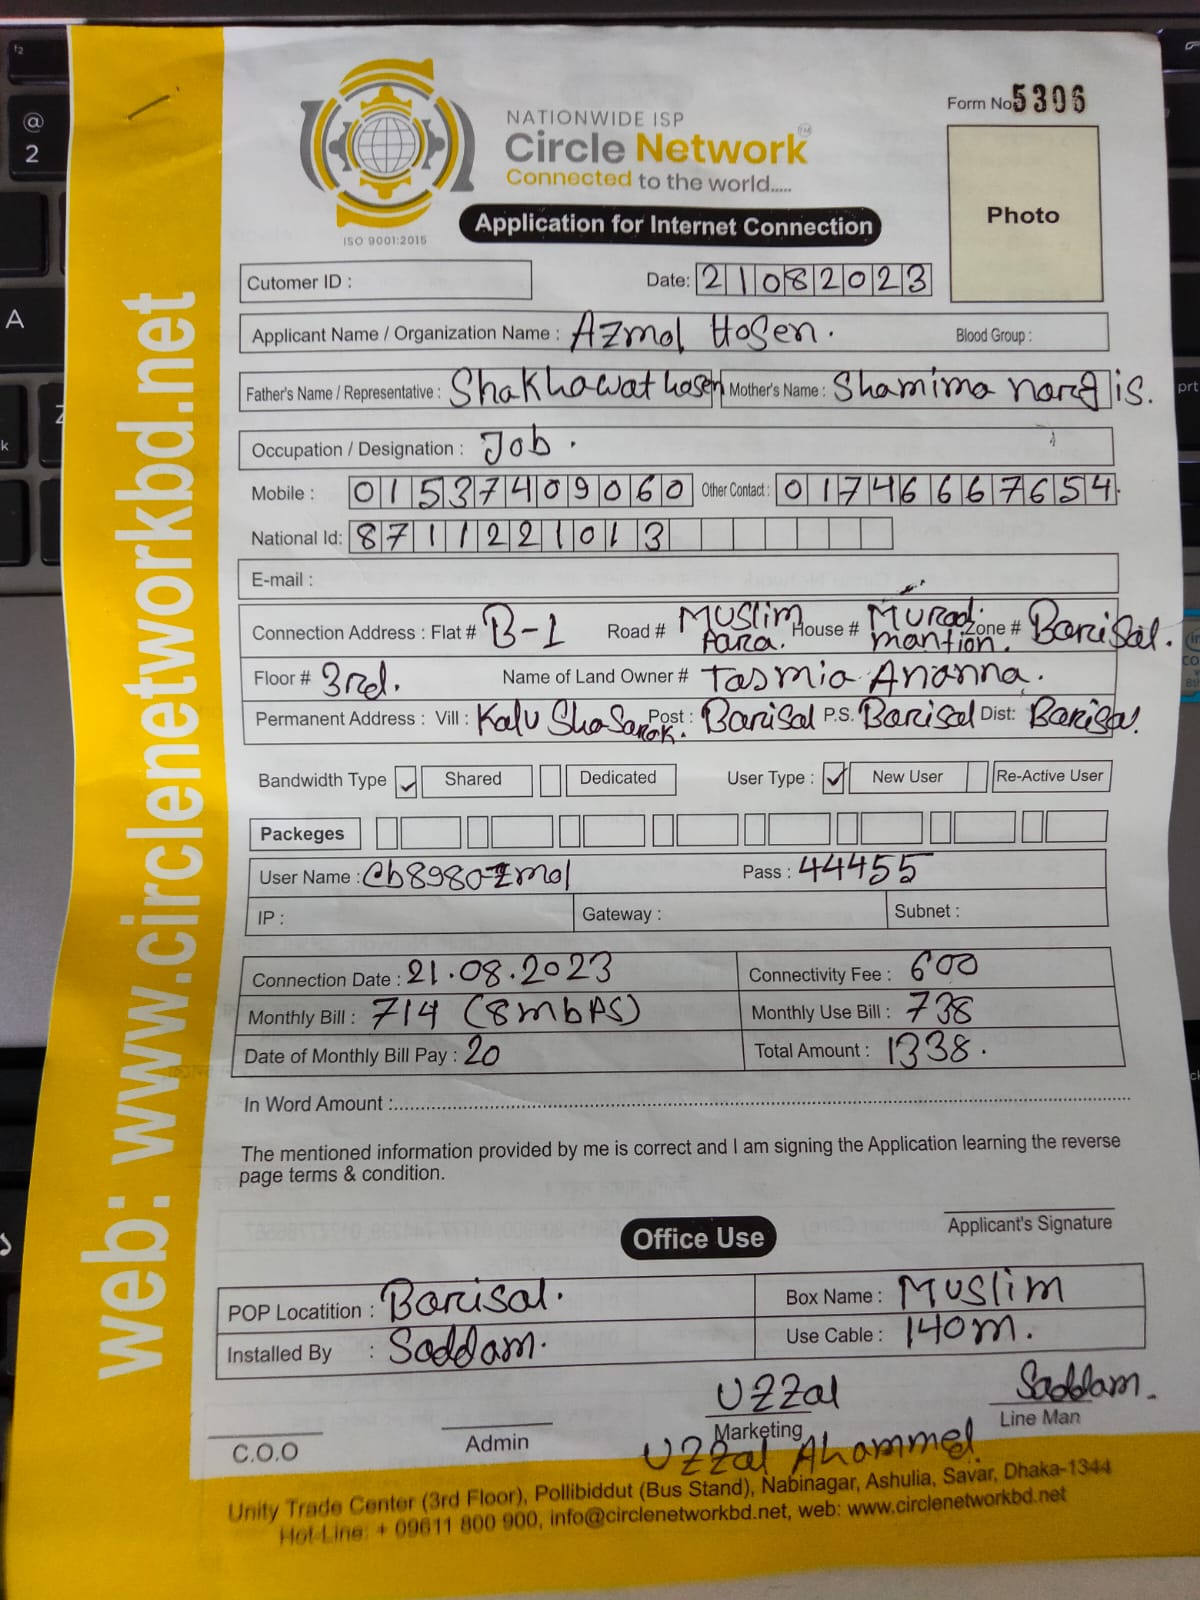 NATIONWIDE ISP
Circle Network TM
Connected to the world.....
ISO 9001:2015
Form No 5306
Photo
Application for Internet Connection
Cutomer ID :
Date: 21082023
Applicant Name / Organization Name : Azmol Hosen. Blood Group :
Father's Name / Representative : Shakhawat hosen Mother's Name : Shamima nargis.
Occupation / Designation : Job.
Mobile : 01537409060 Other Contact : 01746667654
National Id: 8711221013
E-mail :
Connection Address : Flat # B-1 Road # Muslim Para. House # Murad mantion. Zone # Barisal.
Floor # 3rd. Name of Land Owner # Tasmia Ananna.
Permanent Address : Vill : Kalu Sha Sarak. Post : Barisal P.S. Barisal Dist: Barisal
Bandwidth Type ✓ Shared Dedicated User Type : ✓ New User Re-Active User
Packeges
User Name : Pass : 44455
IP : Gateway : Subnet :
Connection Date : 21.08.2023 Connectivity Fee : 600
Monthly Bill : 714 (8mbps) Monthly Use Bill : 738
Date of Monthly Bill Pay : 20 Total Amount : 1338.
In Word Amount :
The mentioned information provided by me is correct and I am signing the Application learning the reverse
page terms & condition.
Applicant's Signature
Office Use
POP Locatition : Barisal. Box Name : Muslim
Installed By : Saddam. Use Cable : 140m.
Uzzal Saddam.
C.O.O Admin Marketing Line Man
Uzzal Ahammed
Unity Trade Center (3rd Floor), Pollibiddut (Bus Stand), Nabinagar, Ashulia, Savar, Dhaka-1344
Hot-Line: + 09611 800 900, info@circlenetworkbd.net, web: www.circlenetworkbd.net
web: www.circlenetworkbd.net